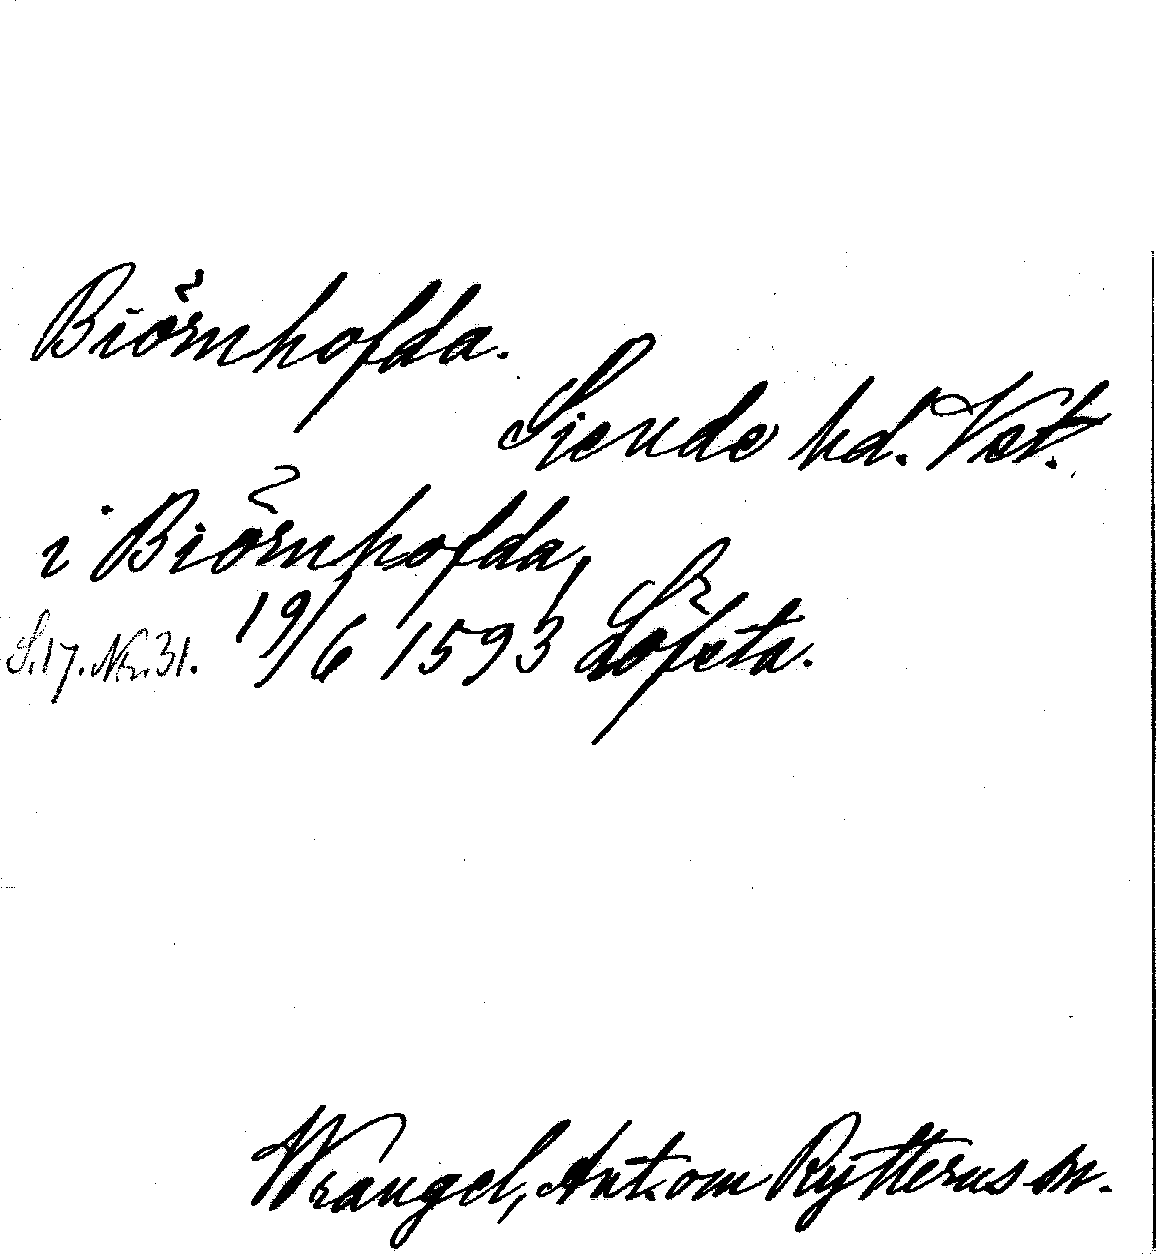 Biörnhofda.
Siende hd. Vst.
i Biörnhofda,
S.17. Nr. 31. 19/6 1593 Löfsta.
Wrangel, Ant. om Rytterns sn.